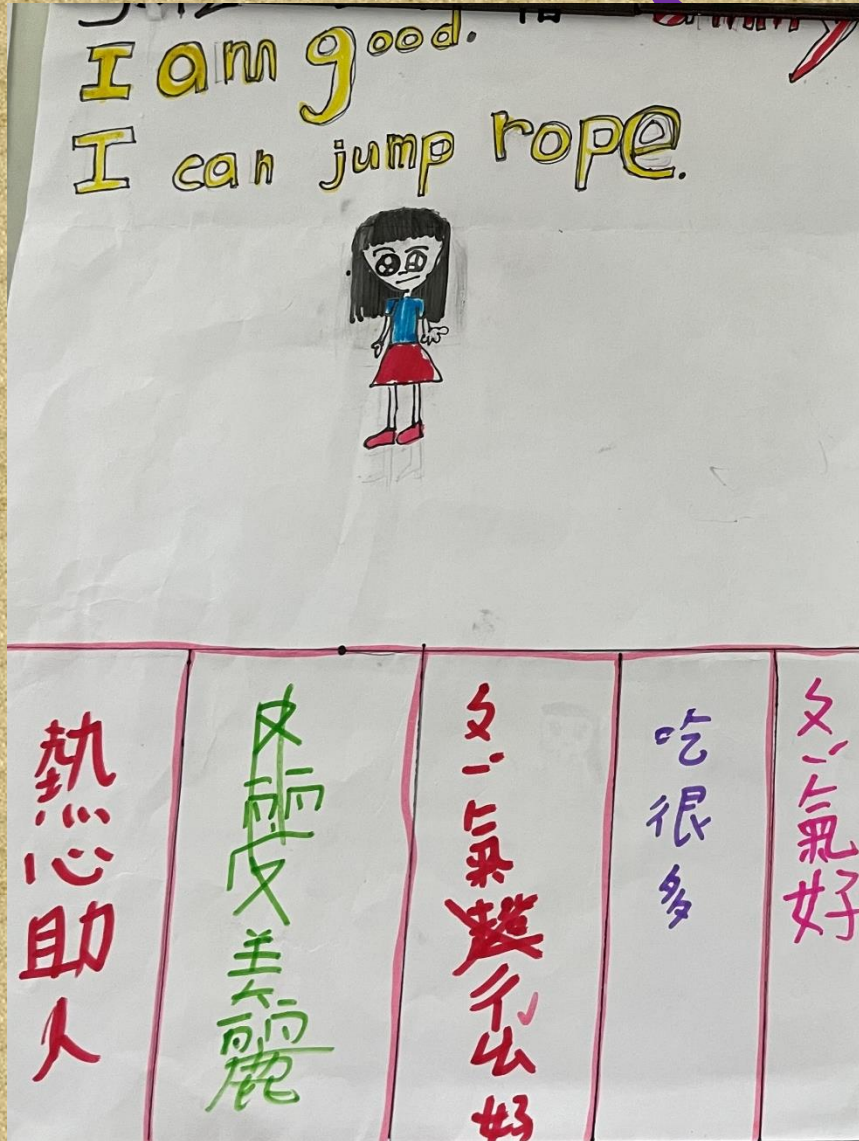 I am good.
I can jump rope.
熱心助人
美麗
ㄆㄧˊ氣ㄔㄠ好
吃很多
ㄆㄧˊ氣好